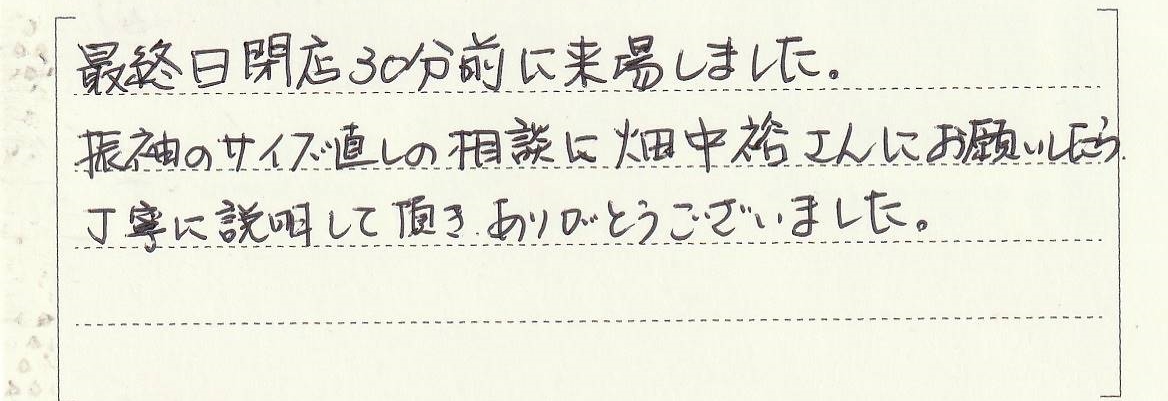 最終日閉店30分前に来場しました。
振袖のサイズ直しの相談に畑中裕さんにお願いしたら
丁寧に説明して頂きありがとうございました。